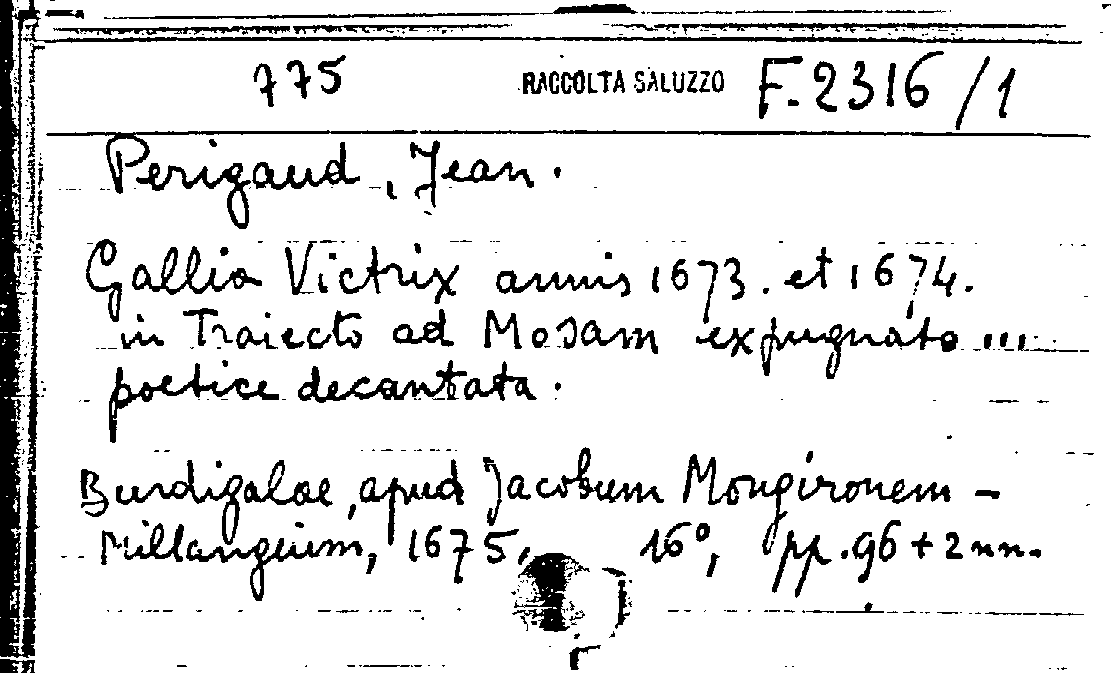 775 RACCOLTA SALUZZO F. 2316/1
Perigaud, Jean.
Gallia Victrix annis 1673. et 1674.
in Traiecto ad Mosam expugnato ...
poetice decantata.
Burdigalae, apud Jacobum Mongironem -
Millangium, 1675, 16°, pp. 96 + 2 nn.